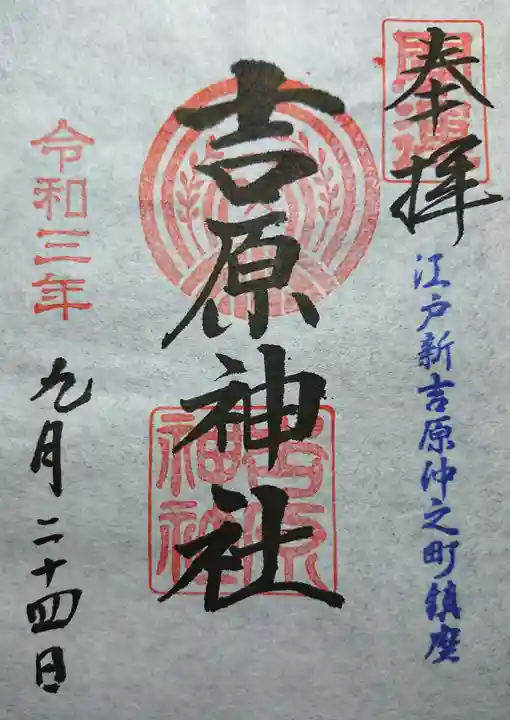 開運
奉拝
江戸新吉原仲之町鎮座
吉原神社
吉原
神社
令和三年
九月二十四日